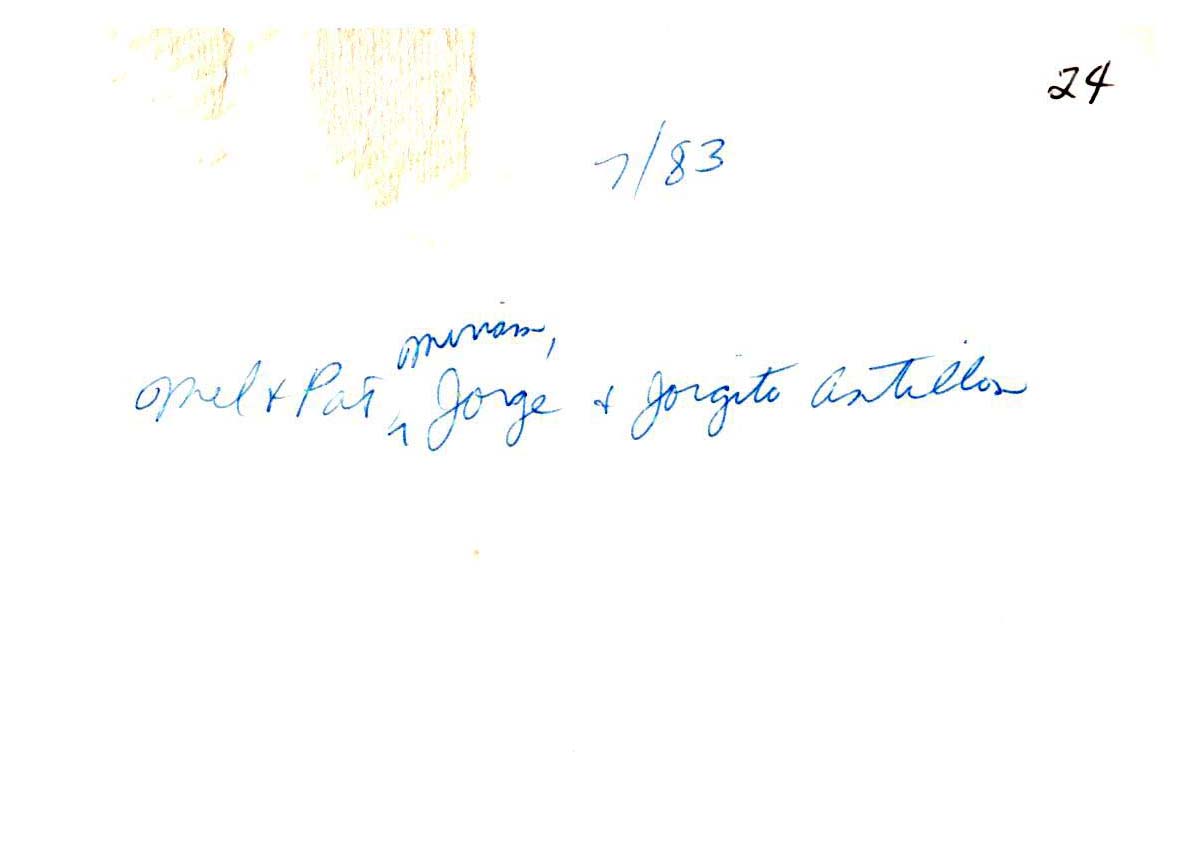 24
7/83
Miriam,
Mel & Pat, Jorge & Jorgito Antillon